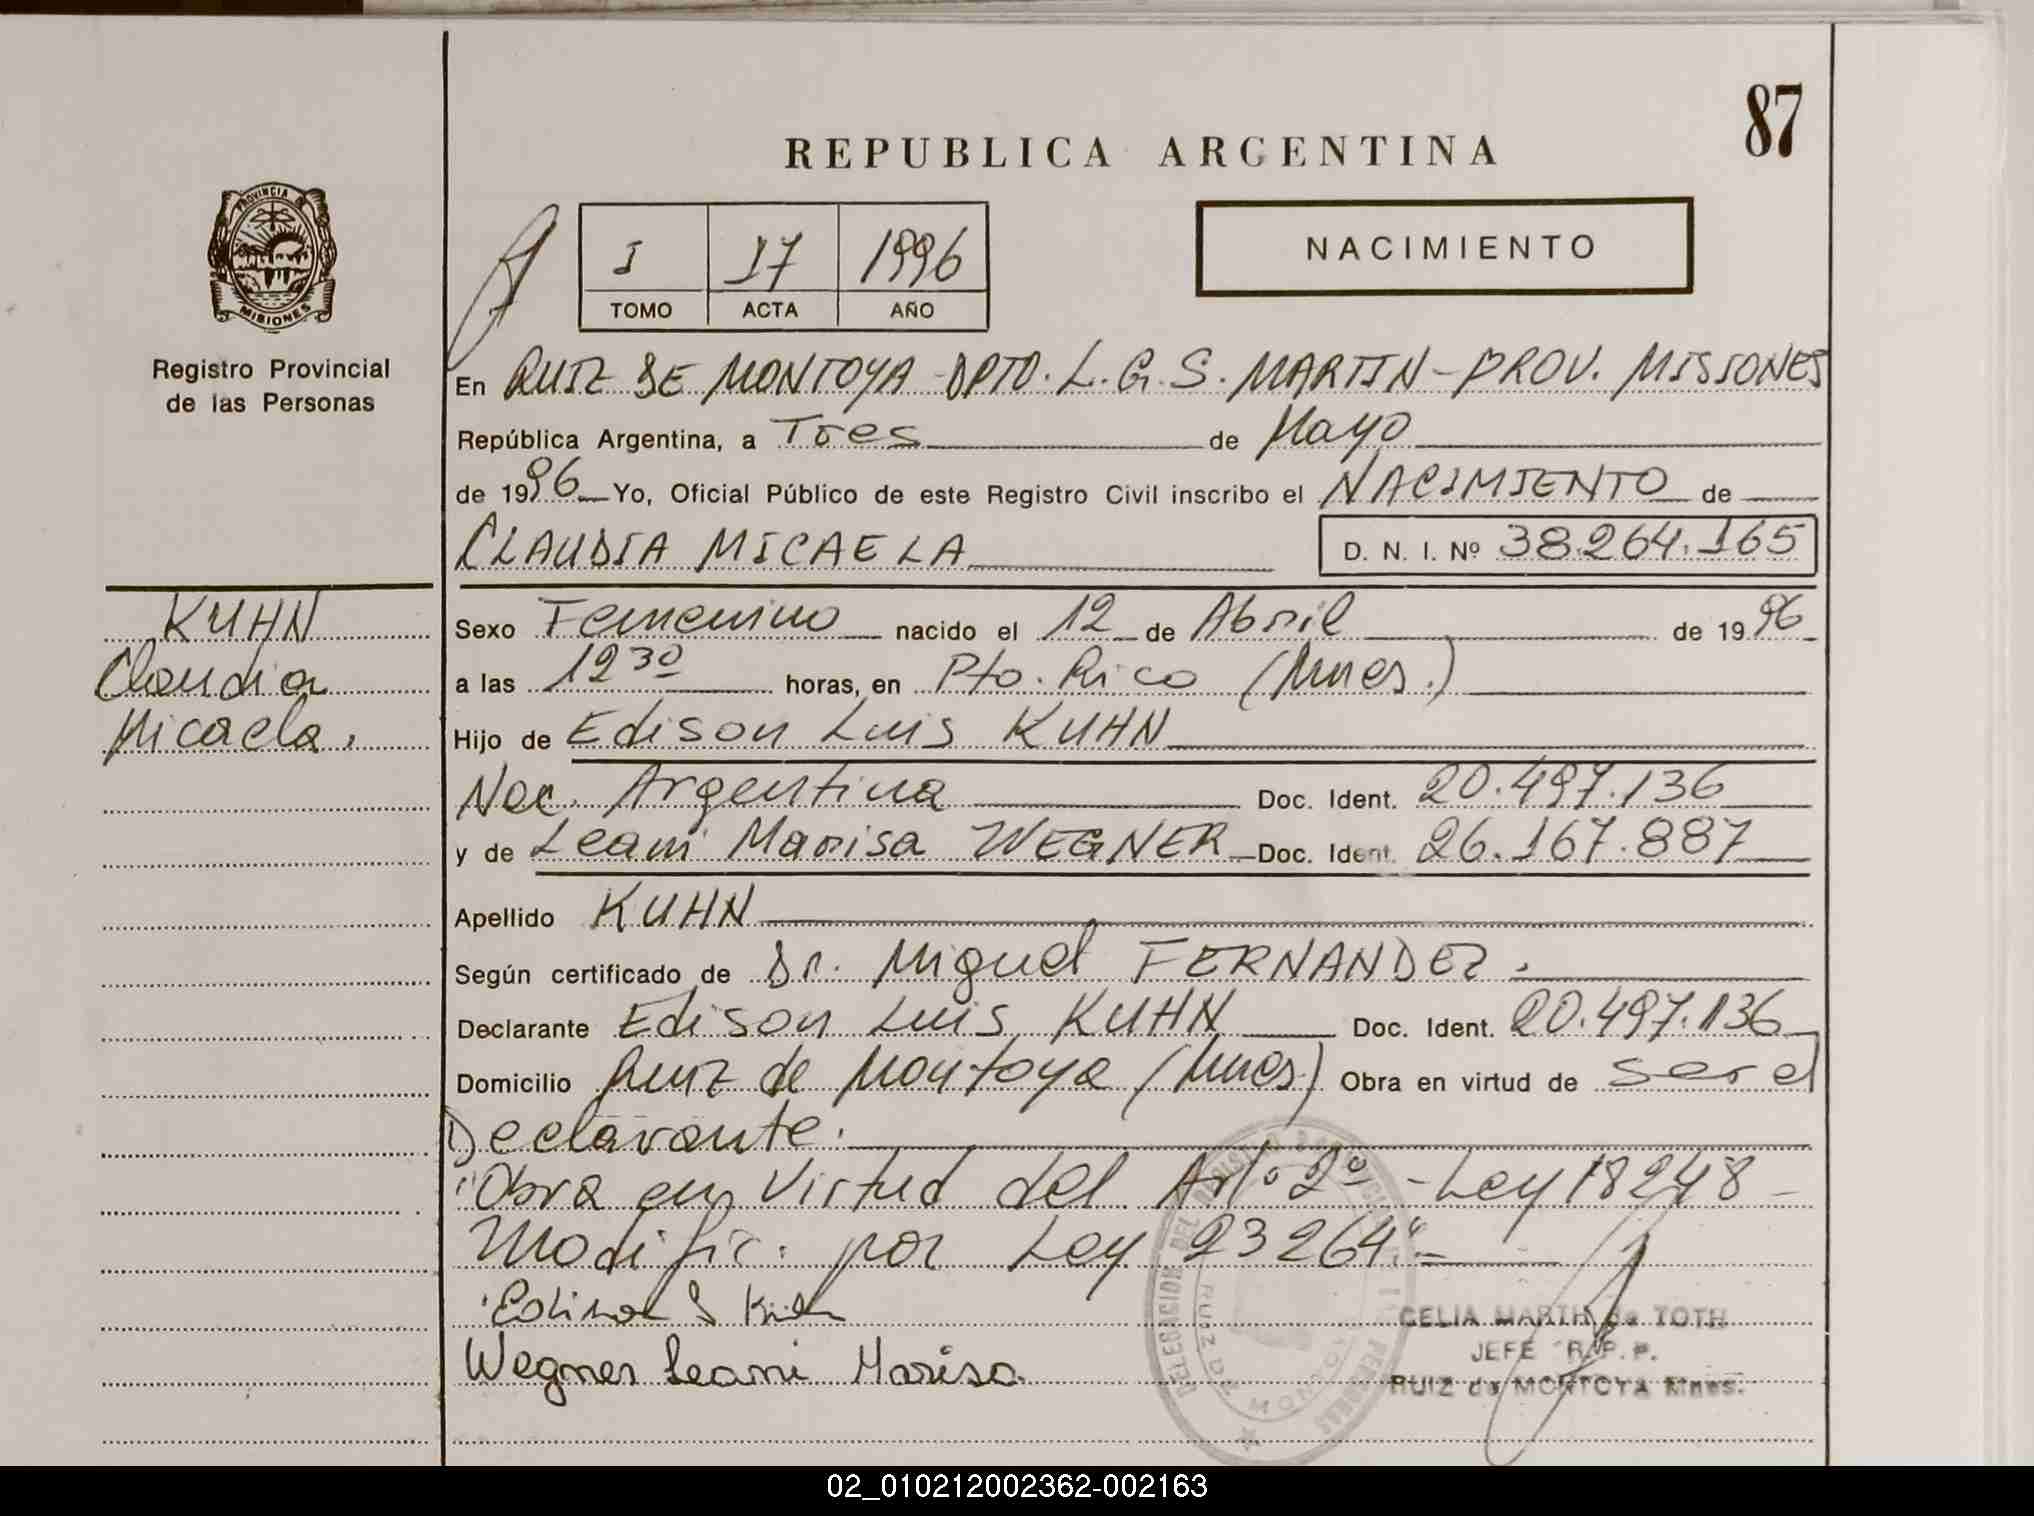 87
REPUBLICA ARGENTINA
PROVINCIA DE
MISIONES
Registro Provincial
de las Personas
I 17 1996
TOMO ACTA AÑO
NACIMIENTO
En RUIZ DE MONTOYA - DPTO. L. G. S. MARTIN - PROV. MISIONES
República Argentina, a Tres de Mayo
de 1996 Yo, Oficial Público de este Registro Civil inscribo el NACIMIENTO de
CLAUDIA MICAELA D. N. I. Nº 38.264.165
KUHN
Claudia
Micaela.
Sexo Femenino nacido el 12 de Abril de 1996
a las 12 30 horas, en Pto. Rico (Mnes.)
Hijo de Edison Luis KUHN
Nac. Argentina Doc. Ident. 20.497.136
y de Leani Marisa WEGNER Doc. Ident. 26.167.887
Apellido KUHN
Según certificado de Dr. Miguel FERNANDEZ.
Declarante Edison Luis KUHN Doc. Ident. 20.497.136
Domicilio Ruiz de Montoya (Mnes) Obra en virtud de ser el
Declarante.
"Obra en Virtud del Art. 2º - Ley 18248 -
Modific. por Ley 23264" -
Wegner Leani Marisa
DELEGACION DEL REGISTRO PERSONAS
RUIZ D MONTOY
CELIA MARTH de TOTH
JEFE R.P.P.
RUIZ de MONTOYA Mnes.
02_010212002362-002163